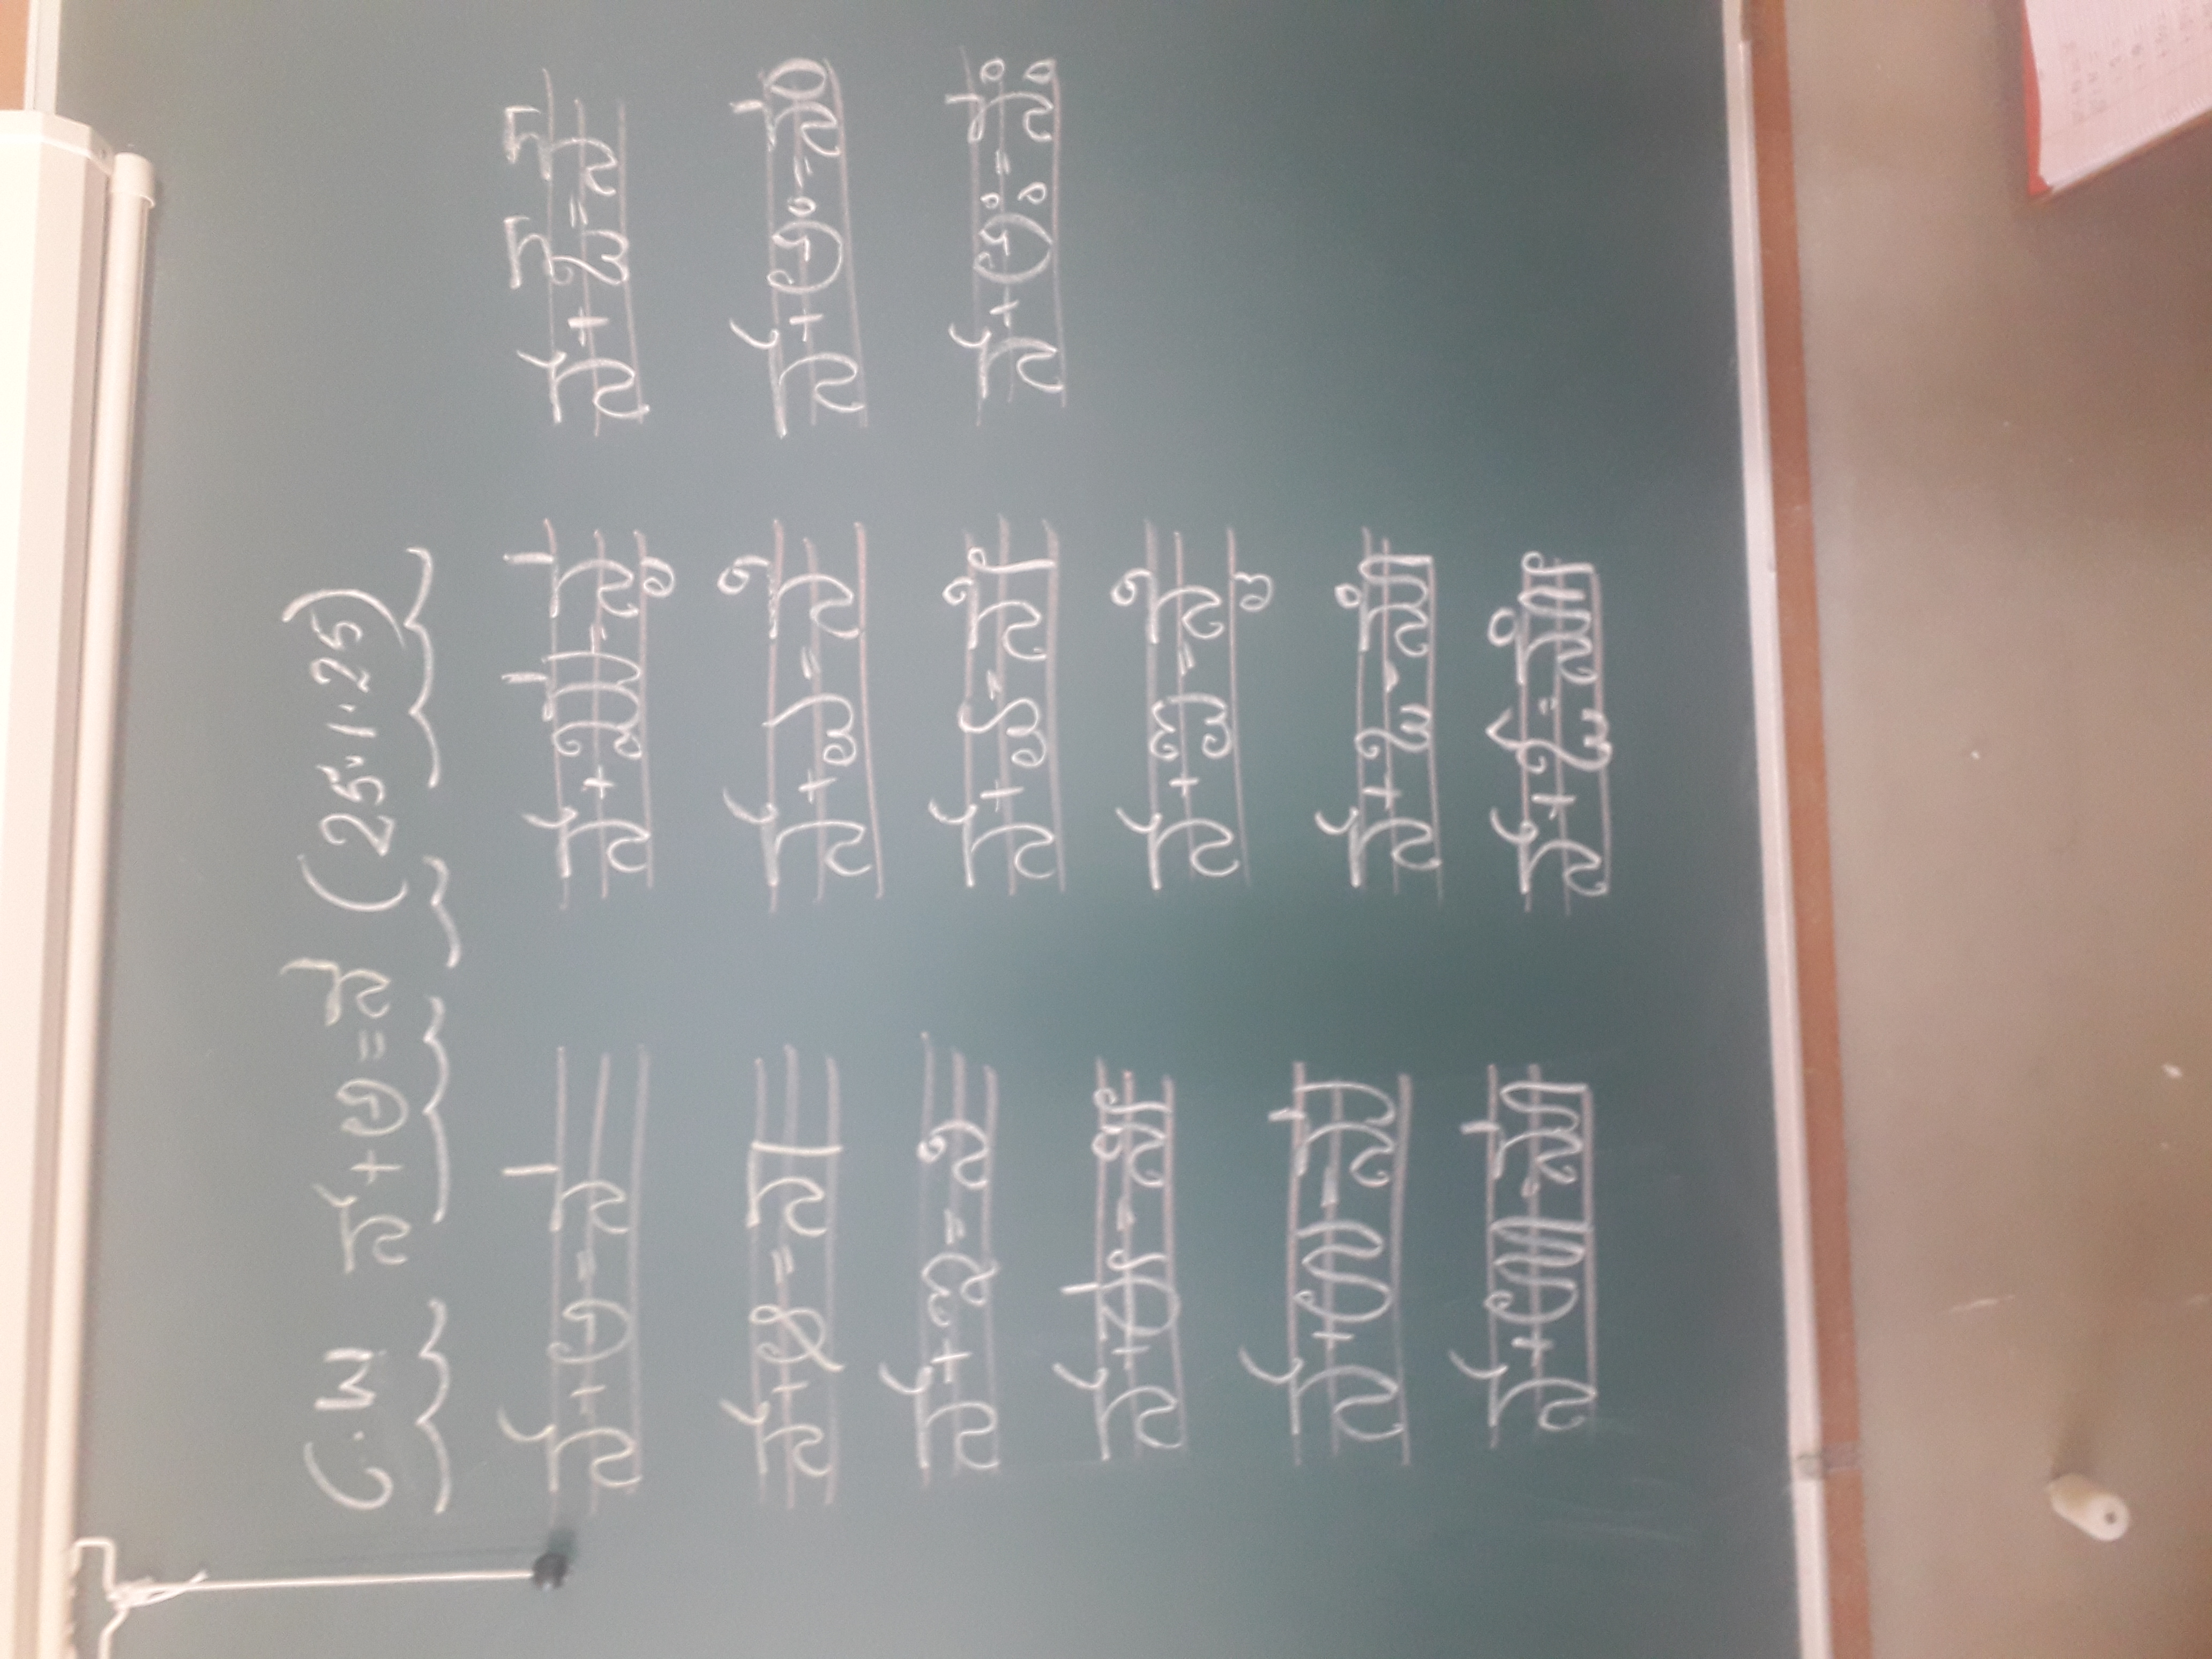 C.W ನ್+ಅ=ನ (25.1.25)
ನ್+ಅ=ನ
ನ್+ಆ=ನಾ
ನ್+ಇ=ನಿ
ನ್+ಈ=ನೀ
ನ್+ಉ=ನು
ನ್+ಊ=ನೂ
ನ್+ಋ=ನೃ
ನ್+ಎ=ನೆ
ನ್+ಏ=ನೇ
ನ್+ಐ=ನೈ
ನ್+ಒ=ನೊ
ನ್+ಓ=ನೋ
ನ್+ಔ=ನೌ
ನ್+ಅಂ=ನಂ
ನ್+ಅಃ=ನಃ